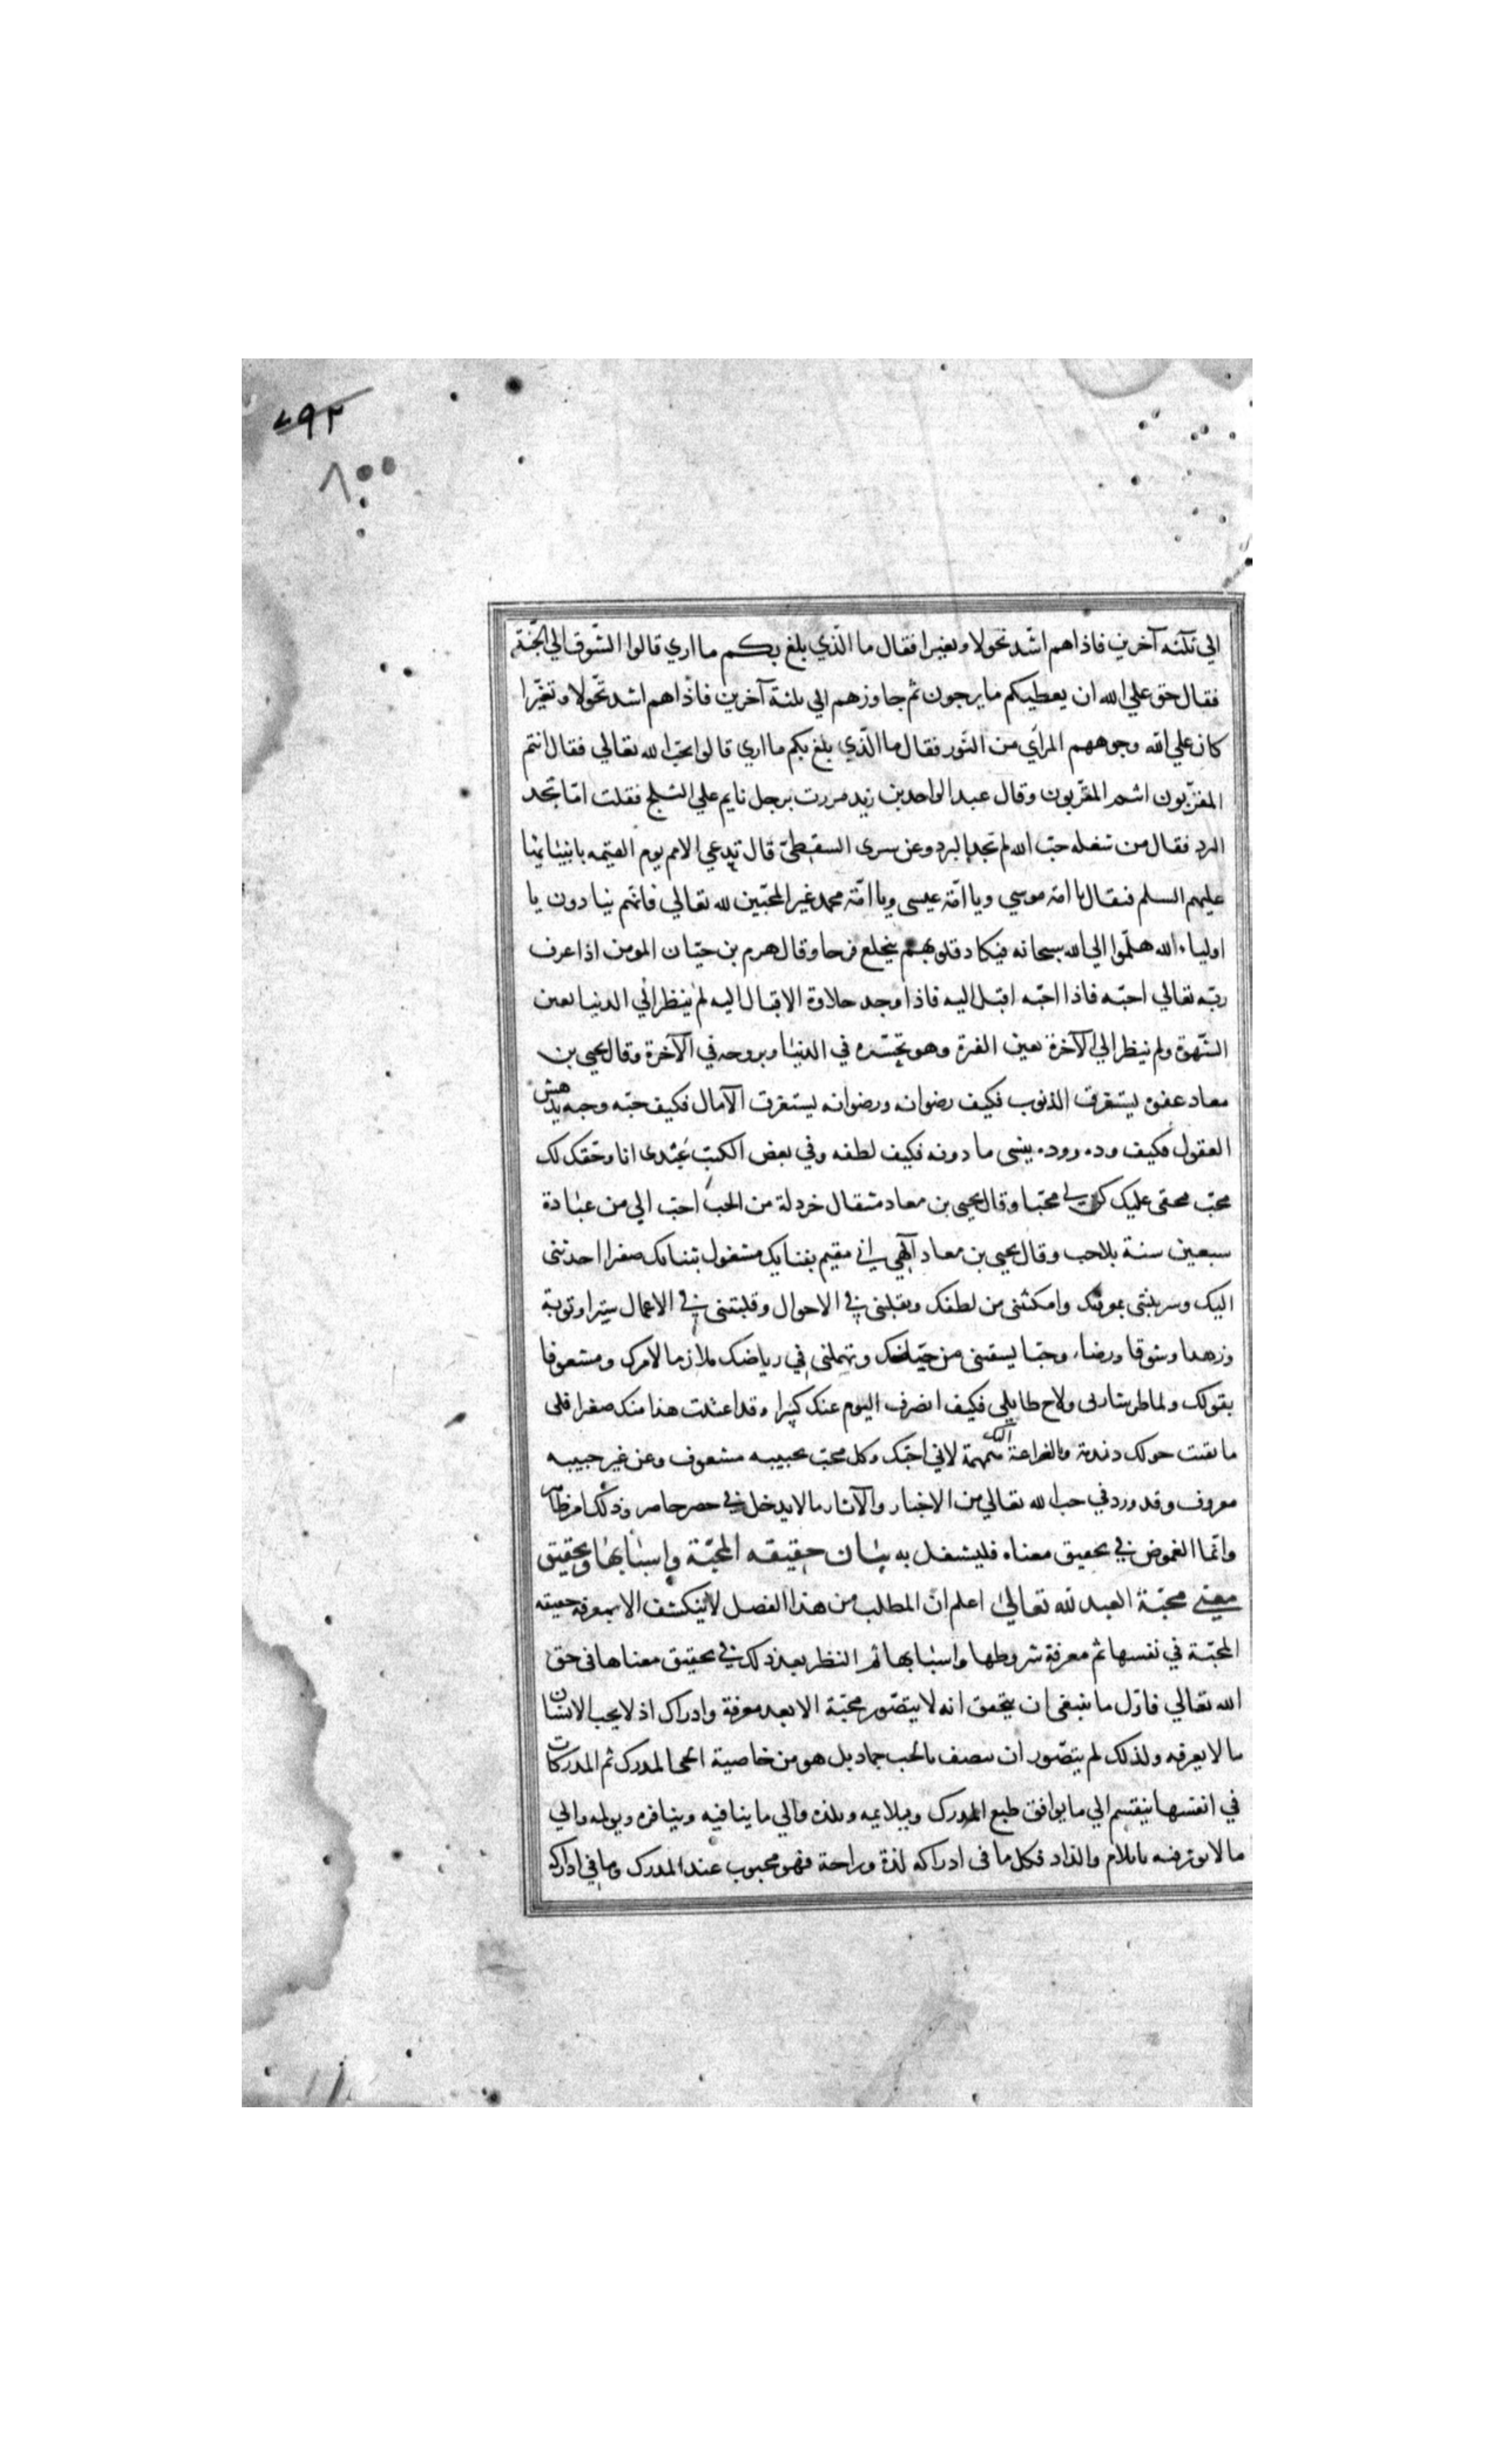 ٧٩٢
٨٠٠
الي ثلثة آخرين فاذاهم اشد نحولا وتغيرا فقال ما الّذي بلغ بكم مااري قالوا الشّوق الي الجّنة
فقال حق علي الله ان يعطيكم مايرجون ثم جاوزهم الي ثلثة آخرين فاذاهم اشد نحولا وتغيّرا
كان علي الله وجوههم المرآي من النّور فقال ماالّذي بلغ بكم مااري قالوا نحبّ الله تعالي فقال انتم
المقرّبون انتم المقرّبون وقال عبدالواحدبن زيد مررت برجل نايم علي الثلج فقلت امّا تجد
البرد فقال من شغله حبّ الله لم تجد البرد وعن سرى السقطيّ قال تدعي الامم يوم القيمه بانبيائها
عليهم السلم فيقال يا امّة موسي ويا امّة عيسى ويا امّة محمد غير المحبّين لله تعالي فانهم ينادون يا
اولياء الله هلّموا الي الله سبحانه فيكاد قلوبهم ينخلع فرحا وقال هرم بن حيّان المومن اذا عرف
ربّه تعالي احبّه فاذا احبّه اقبل اليه فاذا وجد حلاوة الاقبال اليه لم ينظر الي الدنيا بعين
الشّهوة ولم ينظر الي الآخرة بعين الفترة وهو تجسّده في الدنيا وبروحه في الآخرة وقال يحيى بن
معاد عفوه يستغرق الذنوب فكيف رضوانه ورضوانه يستغرق الآمال فكيف حبّه وحبه يدهش
العقول فكيف وده ووده ينسى ما دونه فكيف لطفه وفي بعض الكتب عبدى انا وحقك لك
محبّ فحقى عليك كن لي محبّا وقال يحيى بن معاد مثقال خردلة من الحب احبّ الي من عبادة
سبعين سنة بلاحب وقال يحيى بن معاد آلهي اني مقيم بفنايك مشغول بثنايك صغرا احذتنى
اليك وسربلتنى بمعرفتك وامكنتنى من لطفك ونقلبنى في الاحوال وقلبتنى في الاعمال سترا وتوبة
وزهدا وشوقا ورضاء وحبّا يسقنى من حيّاضك وتهملنى في رياضك ملازما لامرك ومشعوفا
بقولك ولما طر شاربى ولاح طايلي فكيف انصرف اليوم عنك كبيرا وقد اعتدت هذا منك صغرا فلى
ما بقيت حولك دندنة وبالضراعة اليك همهمة لاني احبّك وكل محبّ بحبيبه مشعوف وعن غير حبيبه
مصروف وقد ورد في حب الله تعالي من الاخبار والآثار مالا يدخل في حصر حاصر وذلك امر ظاهر
وانّما الغموض في تحقيق معناه فليشتغل به بيان حقيقه المحبّة واسبابها وتحقيق
معني محبّة العبد لله تعالى اعلم انّ المطلب من هذا الفصل لاينكشف الا بمعرفة حقيقه
المحبّة في نفسها ثم معرفة شروطها واسبابها ثم النظر بعد ذلك في تحقيق معناها فى حق
الله تعالي فاوّل ما ينبغى ان يتحقق انه لا يتصّور محبّة الا بعد معرفة وادراك اذ لا يحب الانسان
ما لا يعرفه ولذلك لم يتصّور ان يتصف بالحب جماد بل هو من خاصية الحى المدرك ثم المدركات
في انفسها ينقسم الي ما يوافق طبع المدرك ويلايمه ويلذه والي ما ينافيه وينافره ويولمه والي
ما لا يوثر فيه بايلام والذاد فكل ما فى ادراكه لذة وراحة فهو محبوب عند المدرك وما في ادراكه